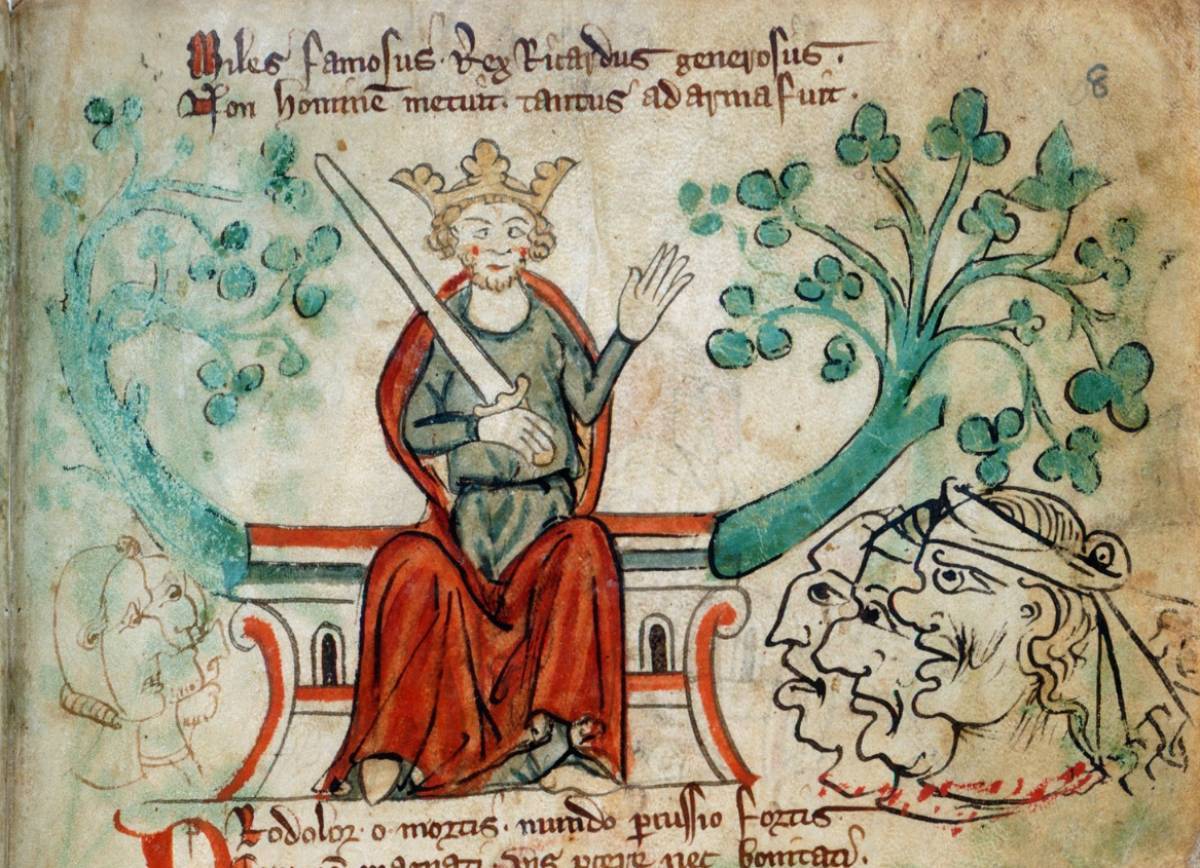 Miles famosus. Rex Ricardus generosus.
Non hominē metuit. tantus ad arma fuit.
8
Pro dolor. o mortis. mundo ꝑcussio fortis
magnati. nec bonitati.